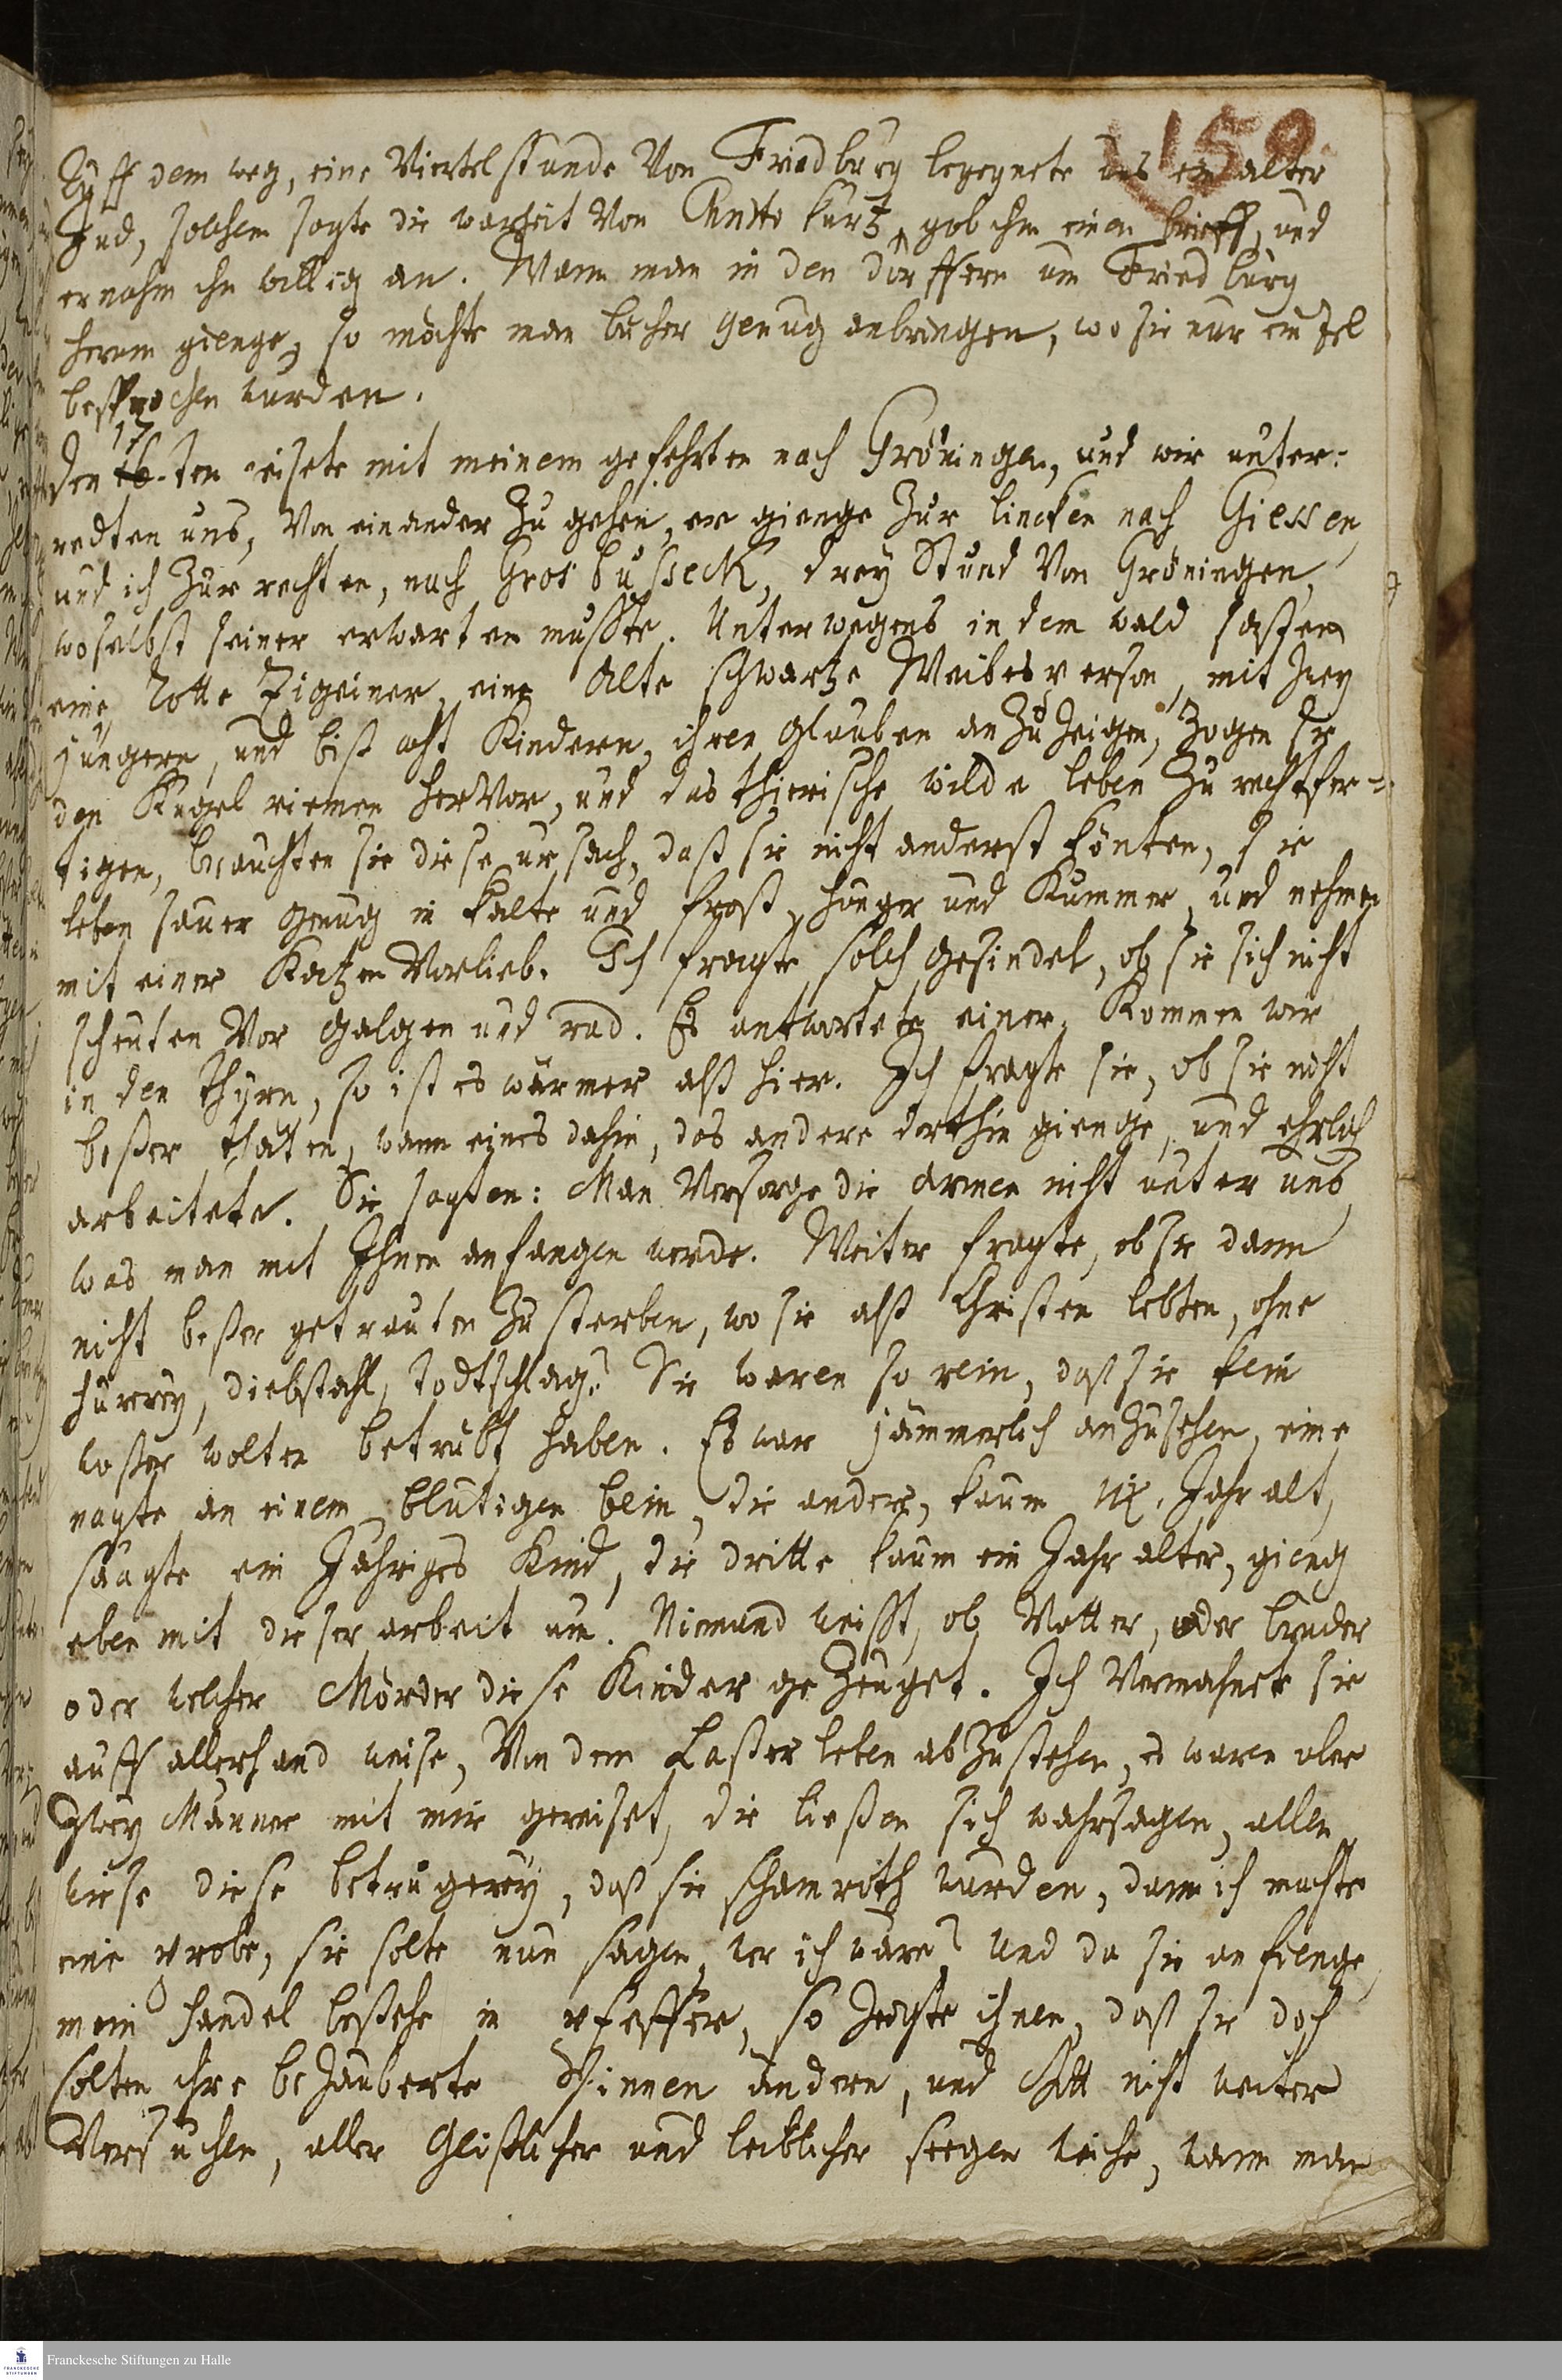 159.
Auff dem weg, eine Viertelstunde Von Friedburg begegnete uns ein alter
Jud, solchem sagte die warheit Von Christo kurtz, gab ihm einen brieff, und
er nahm ihn willig an. Wann man in den dörffern um Friedburg
herum gienge, so möchte man bücher genug anbringen, wo sie nur einzel
besprochen wurden.
17
Den 16.ten reisete mit meinem gefehrten nach Gröningen, und wir unter-
redten uns, Von einander zu gehen, er gienge zur lincken nach Giessen
und ich zur rechten, nach Gros bußeck, drey Stund Von Gröningen,
woselbst seiner erwarten muste. Unterwegens in dem wald saßen
eine Rotte Zigeiner, eine Alte schwartze Weibesperson, mit zwey
jüngern, und biß acht Kindern, ihren Glauben anzuzeigen, zogen sie
den Kugel riemen herVor, und das thierische wilde leben zu rechtfer-
tigen, brauchten sie diese ursach, daß sie nicht anderst könten, sie
leben sauer genug in kälte und frost, hunger und Kummer, und nehmen
mit einer Katzen Vorlieb. Ich fragte solch gesindel, ob sie sich nicht
scheuten Vor galgen und rad. Es antwortete einer, Kommen wir
in den thurn, so ist es wärmer alß hier. Ich fragte sie, ob sie nicht
beßer thäten, wann eines dahin, das andere dorthin gienge, und ehrlich
arbeitete. Sie sagten: Man Versorge die armen nicht unter uns
was man mit Ihnen anfangen werde. Weiter fragte, ob sie dann
nicht beßer getrauten zu sterben, wo sie alß Christen lebten, ohne
hurrey, diebstahl, todtschlag? Sie waren so rein, daß sie kein
waßer wolten betrübt haben. Es war jämmerlich anzusehen, eine
nagte an einem blutigen bein, die andere, kaum Jahr alt,
säugte ein Jähriges Kind, die dritte kaum ein Jahr älter, gieng
eben mit dieser arbeit um. Niemand weisst, ob Vatter, oder bruder
oder welcher Mörder diese Kinder gezeuget. Ich Vermahnete sie
auff allerhand weise, Von dem Laster leben abzustehen, es waren aber
zwey Männer mit mir gereiset, die ließen sich wahrsagen, allen
wiese diese betrügerey, daß sie schamroth wurden, dann ich machte
eine probe, sie solte nun sagen, wer ich wäre? Und da sie anfienge,
mein handel bestehe in pfeffer, so zeigte ihnen, daß sie doch
solten ihre bezauberte Sinnen ändern, und Gott nicht weiter
Versuchen, aller Geistlicher und leiblicher seegen weiche, wann man
Franckesche Stiftungen zu Halle